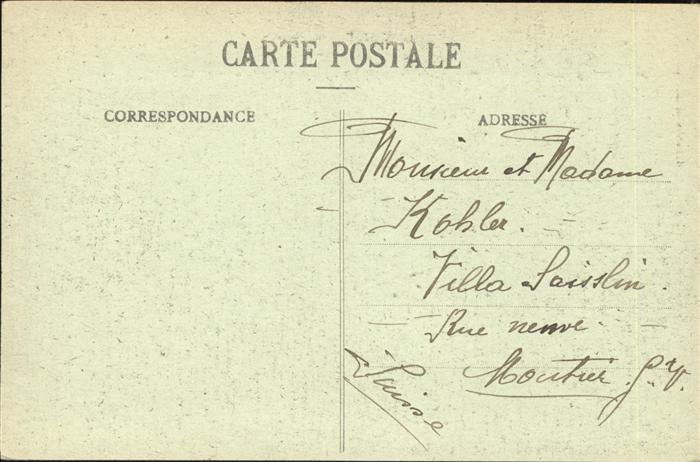 CARTE POSTALE
CORRESPONDANCE
ADRESSE
Monsieur et Madame
Kohler.
Villa
Rue neuve.
Moutier
Suisse